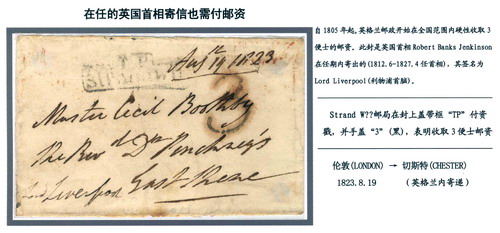 在任的英国首相寄信也需付邮资
自1805年起,英格兰邮政开始在全国范围内硬性收取3
便士的邮资。此封是英国首相Robert Banks Jenkinson
在任期内寄出的(1812.6-1827.4任首相),其签名为
Lord Liverpool(利物浦首脑)。
Strand W??邮局在封上盖带框“TP”付资
戳,并手盖“3”(黑),表明收取3便士邮资
伦敦(LONDON) → 切斯特(CHESTER)
1823.8.19 (英格兰内寄递)
Augst 19 1823
3
Master Cecil Boothby
The Revd Dr
Liverpool East